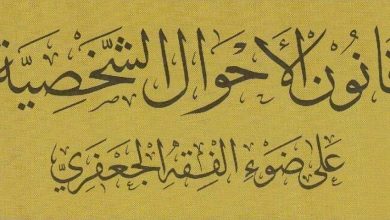 قَانُونُ الأَحْوَالِ الشَّخْصِيَّةِ
عَلَى ضَوْءِ الفِقْهِ الجَعْفَرِيِّ